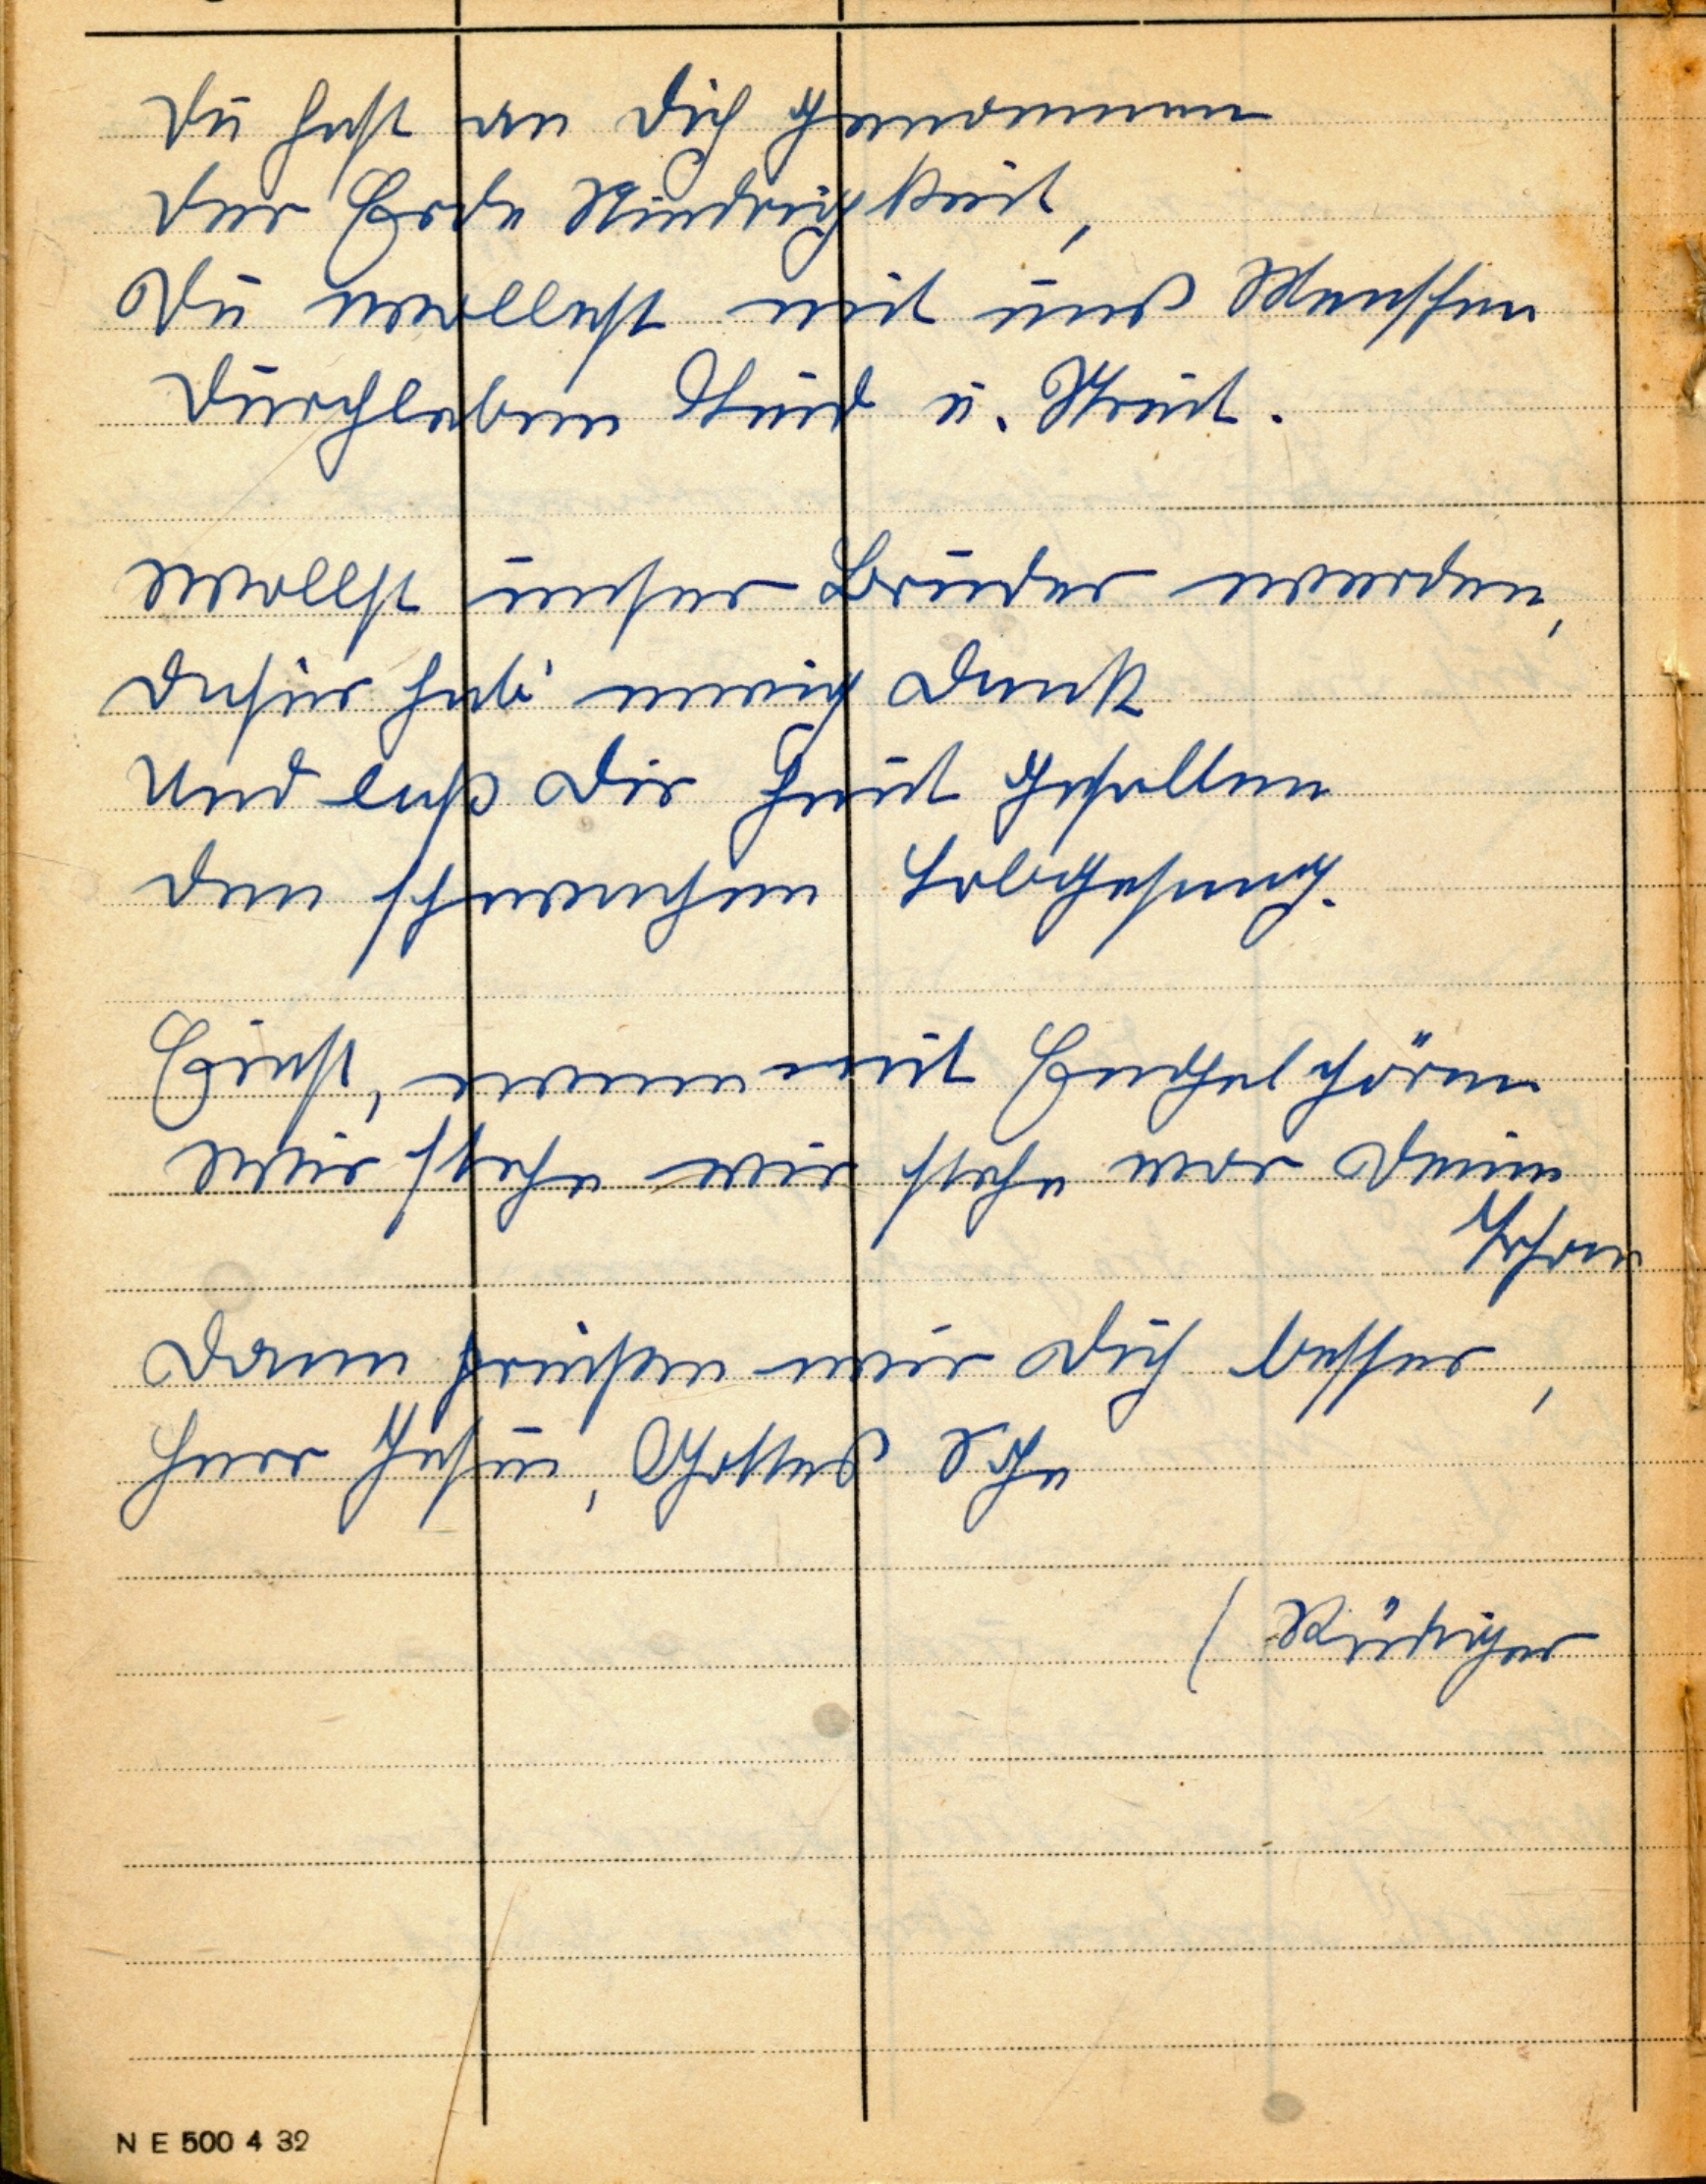 Du hast an Dich genommen
der Erde Niedrigkeit,
Du wollest mit uns Menschen
durchleben Leid u. Streit.
Wollst unser Bruder werden,
dafür hab' ewig Dank
Und laß Dir heut gefallen
den schwachen Lobgesang.
Einst, wenn mit Engelchören
wir stehn wir stehn vor Deim
Thron
Dann preisen wir Dich besser,
Herr Jesu, Gottes
(Rüdiger
N E 500 4 32